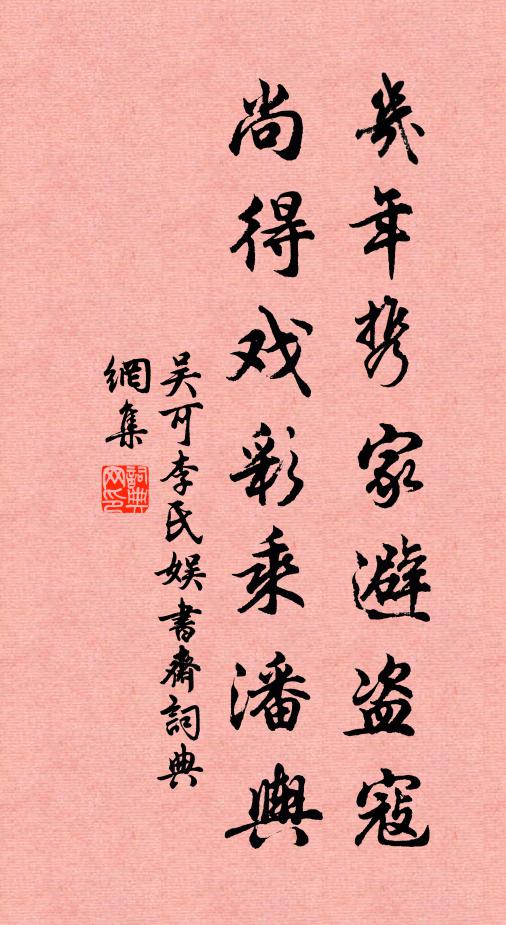 几年携家避盗寇
尚得戏彩乘潘舆
吴可李氏娱书斋詞典
網集
詞典
网印